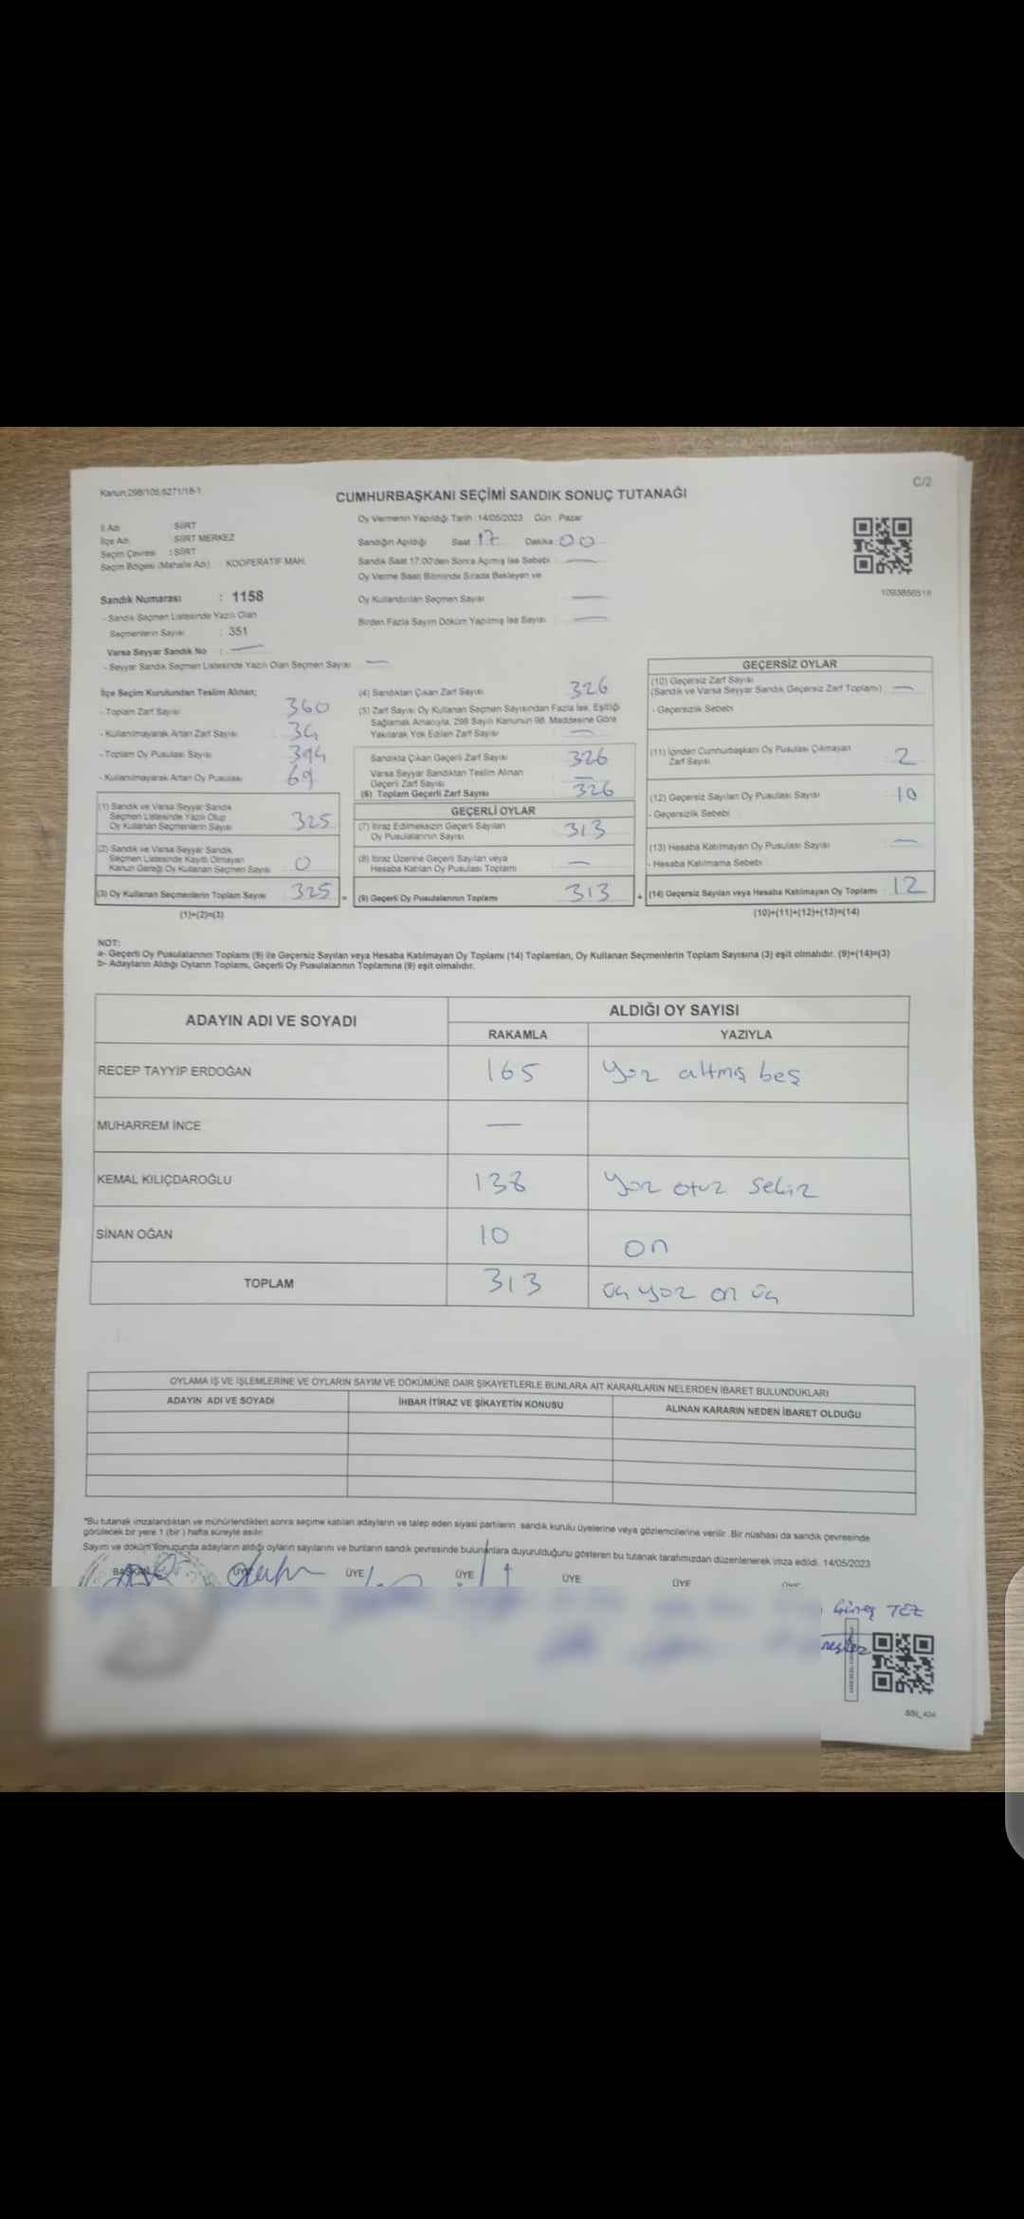 Kanun:298/105,6271/18-1
C/2
CUMHURBAŞKANI SEÇİMİ SANDIK SONUÇ TUTANAĞI
İl Adı : SİİRT
İlçe Adı : SİİRT MERKEZ
Seçim Çevresi : SİİRT
Seçim Bölgesi (Mahalle Adı) : KOOPERATİF MAH.
Oy Vermenin Yapıldığı Tarih :14/05/2023 Gün : Pazar
Sandığın Açıldığı Saat 17 Dakika 00
Sandık Saat 17.00'den Sonra Açılmış İse Sebebi —
Oy Verme Saati Bitiminde Sırada Bekleyen ve
Oy Kullandırılan Seçmen Sayısı —
Birden Fazla Sayım Döküm Yapılmış İse Sayısı —
Sandık Numarası : 1158
- Sandık Seçmen Listesinde Yazılı Olan
Seçmenlerin Sayısı : 351
Varsa Seyyar Sandık No : —
- Seyyar Sandık Seçmen Listesinde Yazılı Olan Seçmen Sayısı —
İlçe Seçim Kurulundan Teslim Alınan;
- Toplam Zarf Sayısı 360
- Kullanılmayarak Artan Zarf Sayısı 34
- Toplam Oy Pusulası Sayısı 394
- Kullanılmayarak Artan Oy Pusulası 69
(1) Sandık ve Varsa Seyyar Sandık
Seçmen Listesinde Yazılı Olup
Oy Kullanan Seçmenlerin Sayısı 325
(2) Sandık ve Varsa Seyyar Sandık
Seçmen Listesinde Kayıtlı Olmayan
Kanun Gereği Oy Kullanan Seçmen Sayısı 0
(3) Oy Kullanan Seçmenlerin Toplam Sayısı 325
(1)+(2)=(3)
=
(4) Sandıktan Çıkan Zarf Sayısı 326
(5) Zarf Sayısı Oy Kullanan Seçmen Sayısından Fazla İse, Eşitliği
Sağlamak Amacıyla, 298 Sayılı Kanunun 98. Maddesine Göre
Yakılarak Yok Edilen Zarf Sayısı —
Sandıkta Çıkan Geçerli Zarf Sayısı 326
Varsa Seyyar Sandıktan Teslim Alınan
Geçerli Zarf Sayısı —
(6) Toplam Geçerli Zarf Sayısı 326
GEÇERLİ OYLAR
(7) İtiraz Edilmeksizin Geçerli Sayılan
Oy Pusulalarının Sayısı 313
(8) İtiraz Üzerine Geçerli Sayılan veya
Hesaba Katılan Oy Pusulası Toplamı —
(9) Geçerli Oy Pusulalarının Toplamı 313
+
GEÇERSİZ OYLAR
(10) Geçersiz Zarf Sayısı
(Sandık ve Varsa Seyyar Sandık Geçersiz Zarf Toplamı) —
- Geçersizlik Sebebi
(11) İçinden Cumhurbaşkanı Oy Pusulası Çıkmayan
Zarf Sayısı 2
(12) Geçersiz Sayılan Oy Pusulası Sayısı 10
- Geçersizlik Sebebi
(13) Hesaba Katılmayan Oy Pusulası Sayısı —
- Hesaba Katılmama Sebebi
(14) Geçersiz Sayılan veya Hesaba Katılmayan Oy Toplamı 12
(10)+(11)+(12)+(13)=(14)
NOT:
a- Geçerli Oy Pusulalarının Toplamı (9) ile Geçersiz Sayılan veya Hesaba Katılmayan Oy Toplamı (14) Toplamları, Oy Kullanan Seçmenlerin Toplam Sayısına (3) eşit olmalıdır. (9)+(14)=(3)
b- Adayların Aldığı Oyların Toplamı, Geçerli Oy Pusulalarının Toplamına (9) eşit olmalıdır.
ADAYIN ADI VE SOYADI
ALDIĞI OY SAYISI
RAKAMLA YAZIYLA
RECEP TAYYİP ERDOĞAN 165 yüz altmış beş
MUHARREM İNCE —
KEMAL KILIÇDAROĞLU 138 yüz otuz sekiz
SİNAN OĞAN 10 on
TOPLAM 313 üç yüz on üç
OYLAMA İŞ VE İŞLEMLERİNE VE OYLARIN SAYIM VE DÖKÜMÜNE DAİR ŞİKAYETLERLE BUNLARA AİT KARARLARIN NELERDEN İBARET BULUNDUKLARI
ADAYIN ADI VE SOYADI İHBAR İTİRAZ VE ŞİKAYETİN KONUSU ALINAN KARARIN NEDEN İBARET OLDUĞU
*Bu tutanak imzalandıktan ve mühürlendikten sonra seçime katılan adayların ve talep eden siyasi partilerin sandık kurulu üyelerine veya gözlemcilerine verilir. Bir nüshası da sandık çevresinde
görülecek bir yere 1 (bir) hafta süreyle asılır.
Sayım ve döküm sonucunda adayların aldığı oyların sayılarını ve bunların sandık çevresinde bulunanlara duyurulduğunu gösteren bu tutanak tarafımızdan düzenlenerek imza edildi. 14/05/2023
BAŞKAN ÜYE ÜYE ÜYE ÜYE ÜYE
Güneş TEZ